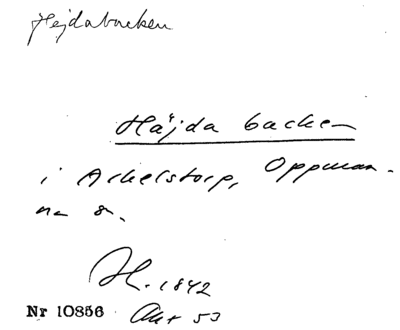 Hejdabacken
Häjda backen
i Arkelstorp, Oppman-
na s.
H. 1842
Akt 53
Nr 10856